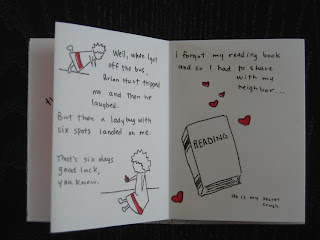 Well, when I got
off the bus,
Brian Hunt tripped
me and then he
laughed.
But then a ladybug with
six spots landed on me.
That's six days
good luck,
you know.
I forgot my reading book
and so I had to share
with my
neighbor...
READING
He is my secret
crush.